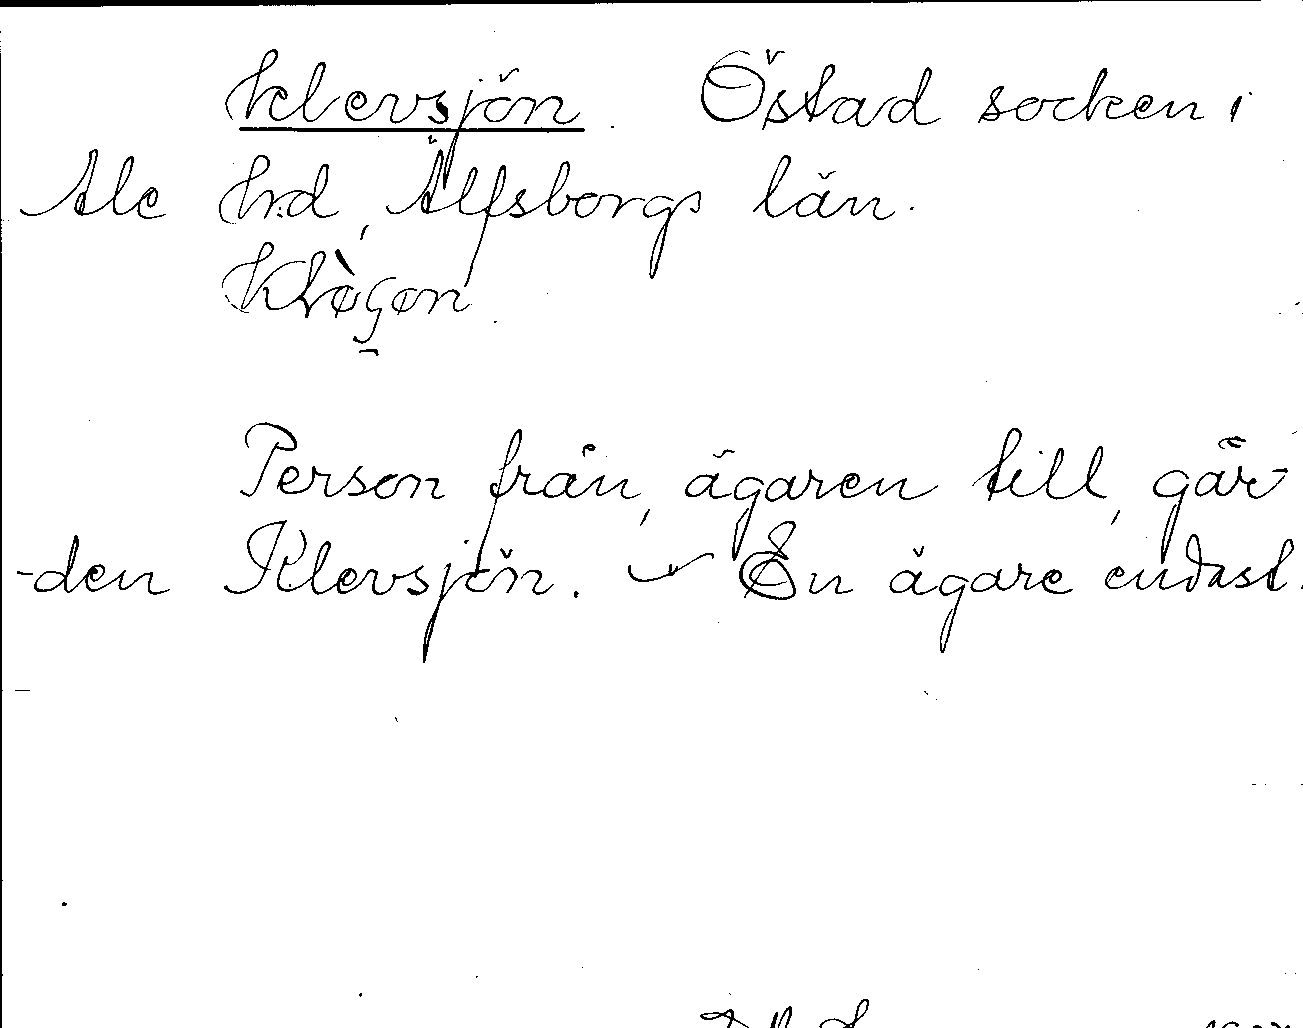 Klevsjön. Östad socken i
Ale hd, Älfsborgs län.
Person från, ägaren till, går-
-den Klevsjön. En ägare endast.